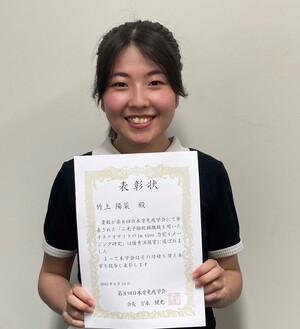 表彰状
竹上 陽菜 殿
貴殿が第8回日本骨免疫学会にて発
表された「二光子励起顕微鏡を用いた
オステオサイトの in vivo 力覚イメー
ジング研究」は優秀演題賞に選ばれました
よって本学会はその功績を讃え本
賞を授与し表彰します
第8回日本骨免疫学会
会長 宮本 健史